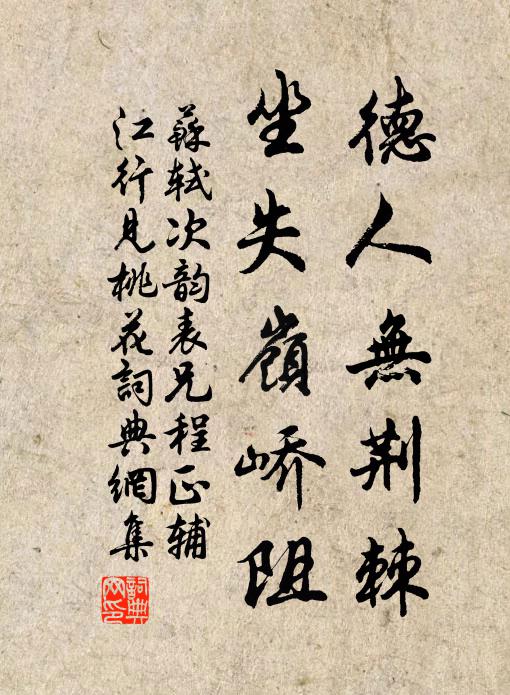 德人無荆棘
坐失嶺嶠阻
蘇軾次韵表兄程正辅
江行見桃花詞典網集
詞典網印